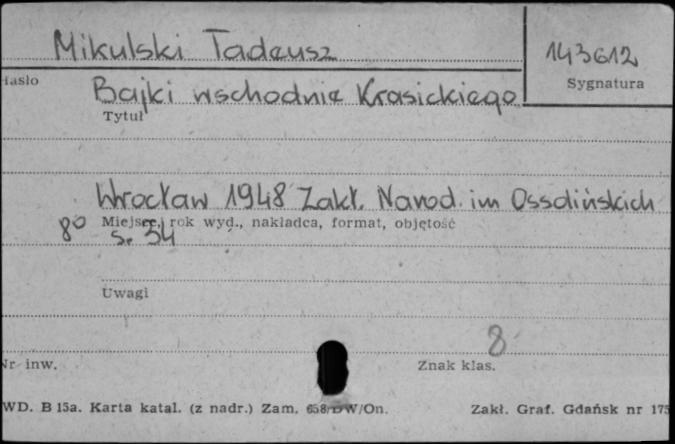 Mikulski Tadeusz
143612
Sygnatura
Hasło
Bajki wschodnie Krasickiego
Tytuł
Wrocław 1948 Zakł. Narod. im Ossolińskich
Miejsce, rok wyd., nakładca, format, objętość
8º s. 54
Uwagi
8
Nr inw.
Znak klas.
WD. B 15a. Karta katal. (z nadr.) Zam. 658/DW/On.
Zakł. Graf. Gdańsk nr 175